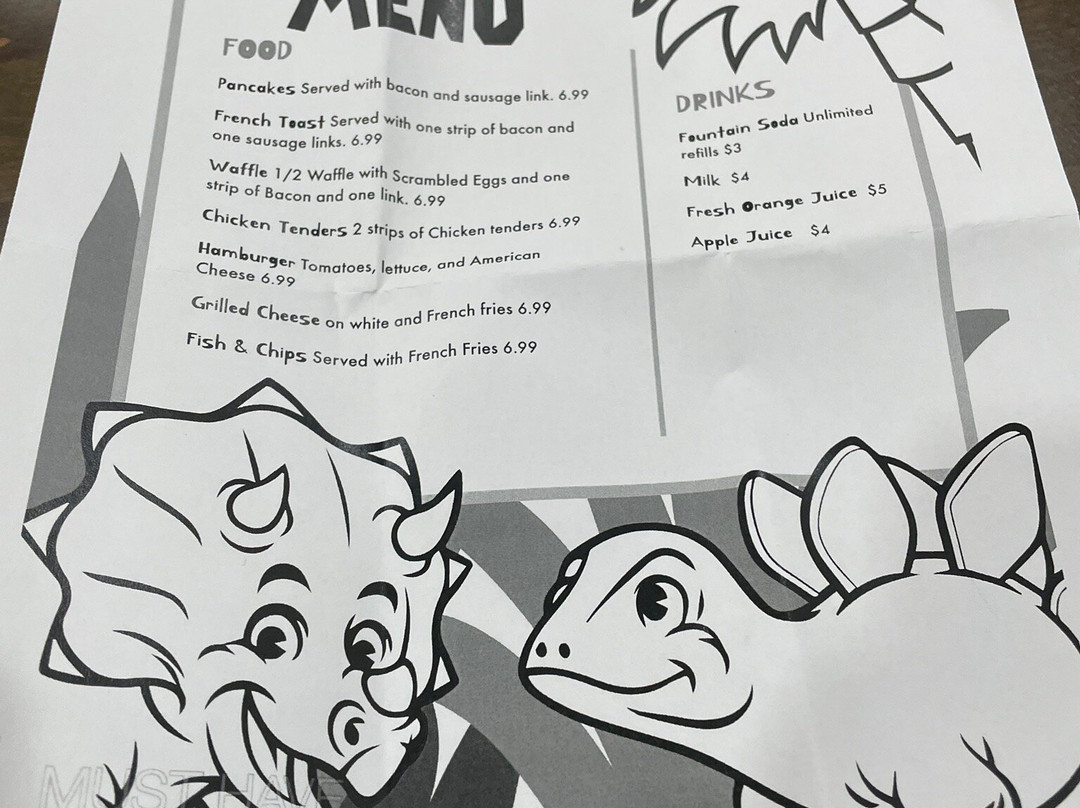 MENU
FOOD
Pancakes Served with bacon and sausage link. 6.99
French Toast Served with one strip of bacon and
one sausage links. 6.99
Waffle 1/2 Waffle with Scrambled Eggs and one
strip of Bacon and one link. 6.99
Chicken Tenders 2 strips of Chicken tenders 6.99
Hamburger Tomatoes, lettuce, and American
Cheese 6.99
Grilled Cheese on white and French fries 6.99
Fish & Chips Served with French Fries 6.99
DRINKS
Fountain Soda Unlimited
refills $3
Milk $4
Fresh Orange Juice $5
Apple Juice $4
MUST HAVE